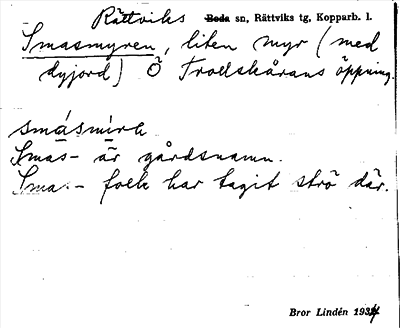 Rättviks Boda sn, Rättviks tg, Kopparb. l.
Smasmyren, liten myr (med
dyjord) Ö Troellskårans öppning.
smásmìrh
Smas- är gårdsnamn.
Smas- folk har tagit strö där.
Bror Lindén 1934